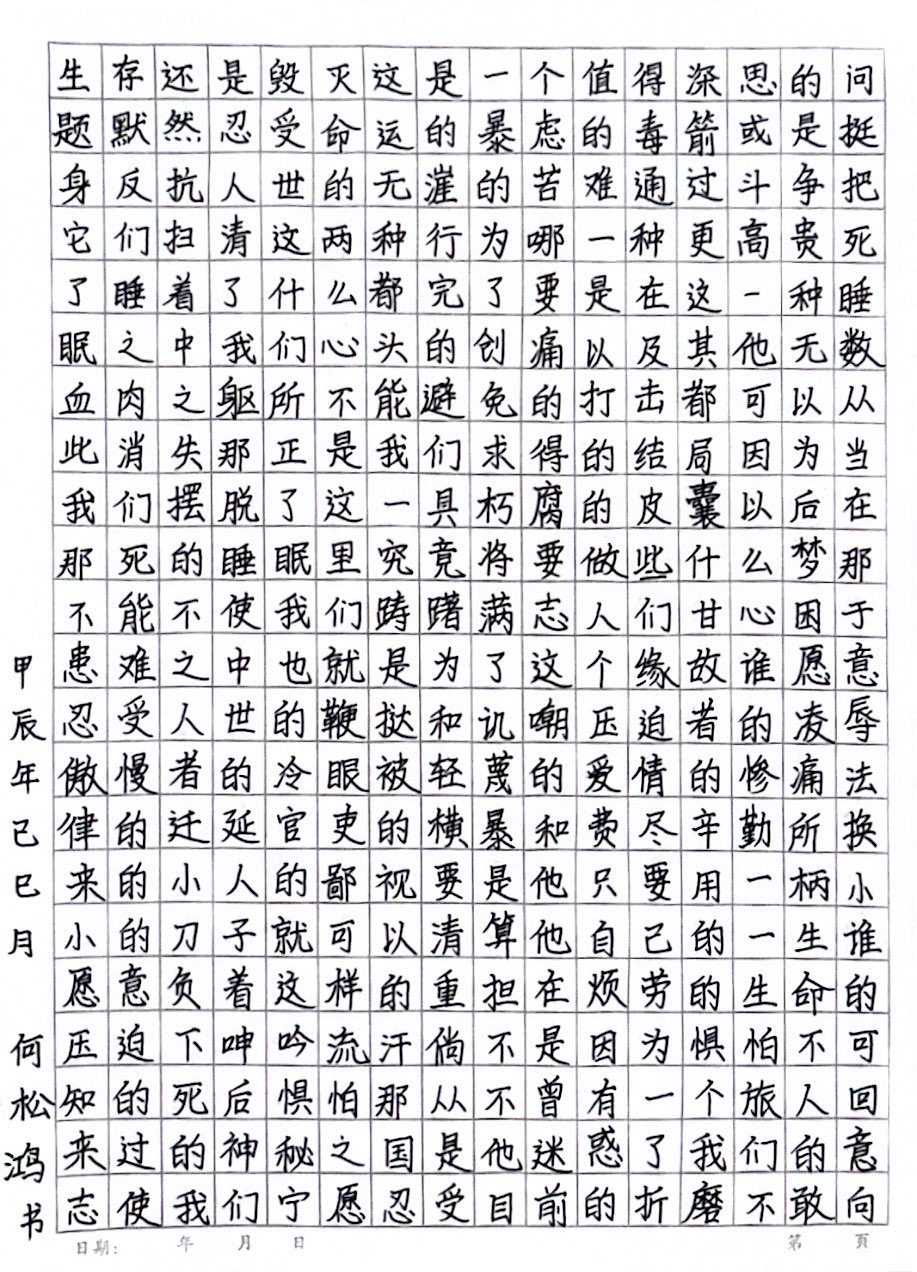 生存还是毁灭这是一个值得深思的问
题默然忍受命运的暴虑的毒箭或是挺
身反抗人世的无漄的苦难通过斗争把
它们扫清这两种行为哪一种更高贵死
了睡着了什么都完了要是在这一种睡
眠之中我们心头的创痛以及其他无数
血肉之躯所不能避免的打击都可以从
此消失那正是我们求得的结局因为当
我们摆脱了这一具朽腐的皮囊以后在
那死的睡眠里究竟将要做些什么梦那
不能不使我们踌躇满志人们甘心困于
患难之中也就是为了这个缘故谁愿意
忍受人世的鞭挞和讥嘲压迫者的凌辱
傲慢者的冷眼被轻蔑的爱情的惨痛法
律的迁延官吏的横暴和费尽辛勤所换
来的小人的鄙视要是他只要用一柄小
小的刀子就可以清算他自己的一生谁
愿意负着这样的重担在烦劳的生命的
压迫下呻吟流汗倘不是因为惧怕不可
知的死后惧怕那从不曾有一个旅人回
来过的神秘之国是他迷惑了我们的意
志使我们宁愿忍受目前的折磨不敢向
甲辰年己巳月 何松鸿书
日期: 年 月 日 第 頁